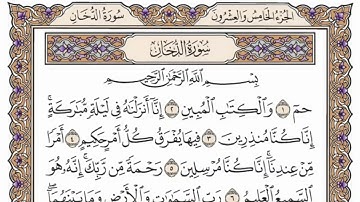 سُورَةُ الدُّخَانِ
الجُزْءُ الخَامِسُ وَالعِشْرُونَ
سُورَةُ الدُّخَانِ
بِسْمِ اللَّهِ الرَّحْمَٰنِ الرَّحِيمِ
حمٓ ۝١ وَالْكِتَابِ الْمُبِينِ ۝٢ إِنَّا أَنزَلْنَاهُ فِي لَيْلَةٍ مُّبَارَكَةٍ ۚ
إِنَّا كُنَّا مُنذِرِينَ ۝٣ فِيهَا يُفْرَقُ كُلُّ أَمْرٍ حَكِيمٍ ۝٤ أَمْرًا
مِّنْ عِندِنَا ۚ إِنَّا كُنَّا مُرْسِلِينَ ۝٥ رَحْمَةً مِّن رَّبِّكَ ۚ إِنَّهُ هُوَ
السَّمِيعُ الْعَلِيمُ ۝٦ رَبِّ السَّمَاوَاتِ وَالْأَرْضِ وَمَا بَيْنَهُمَا ۖ